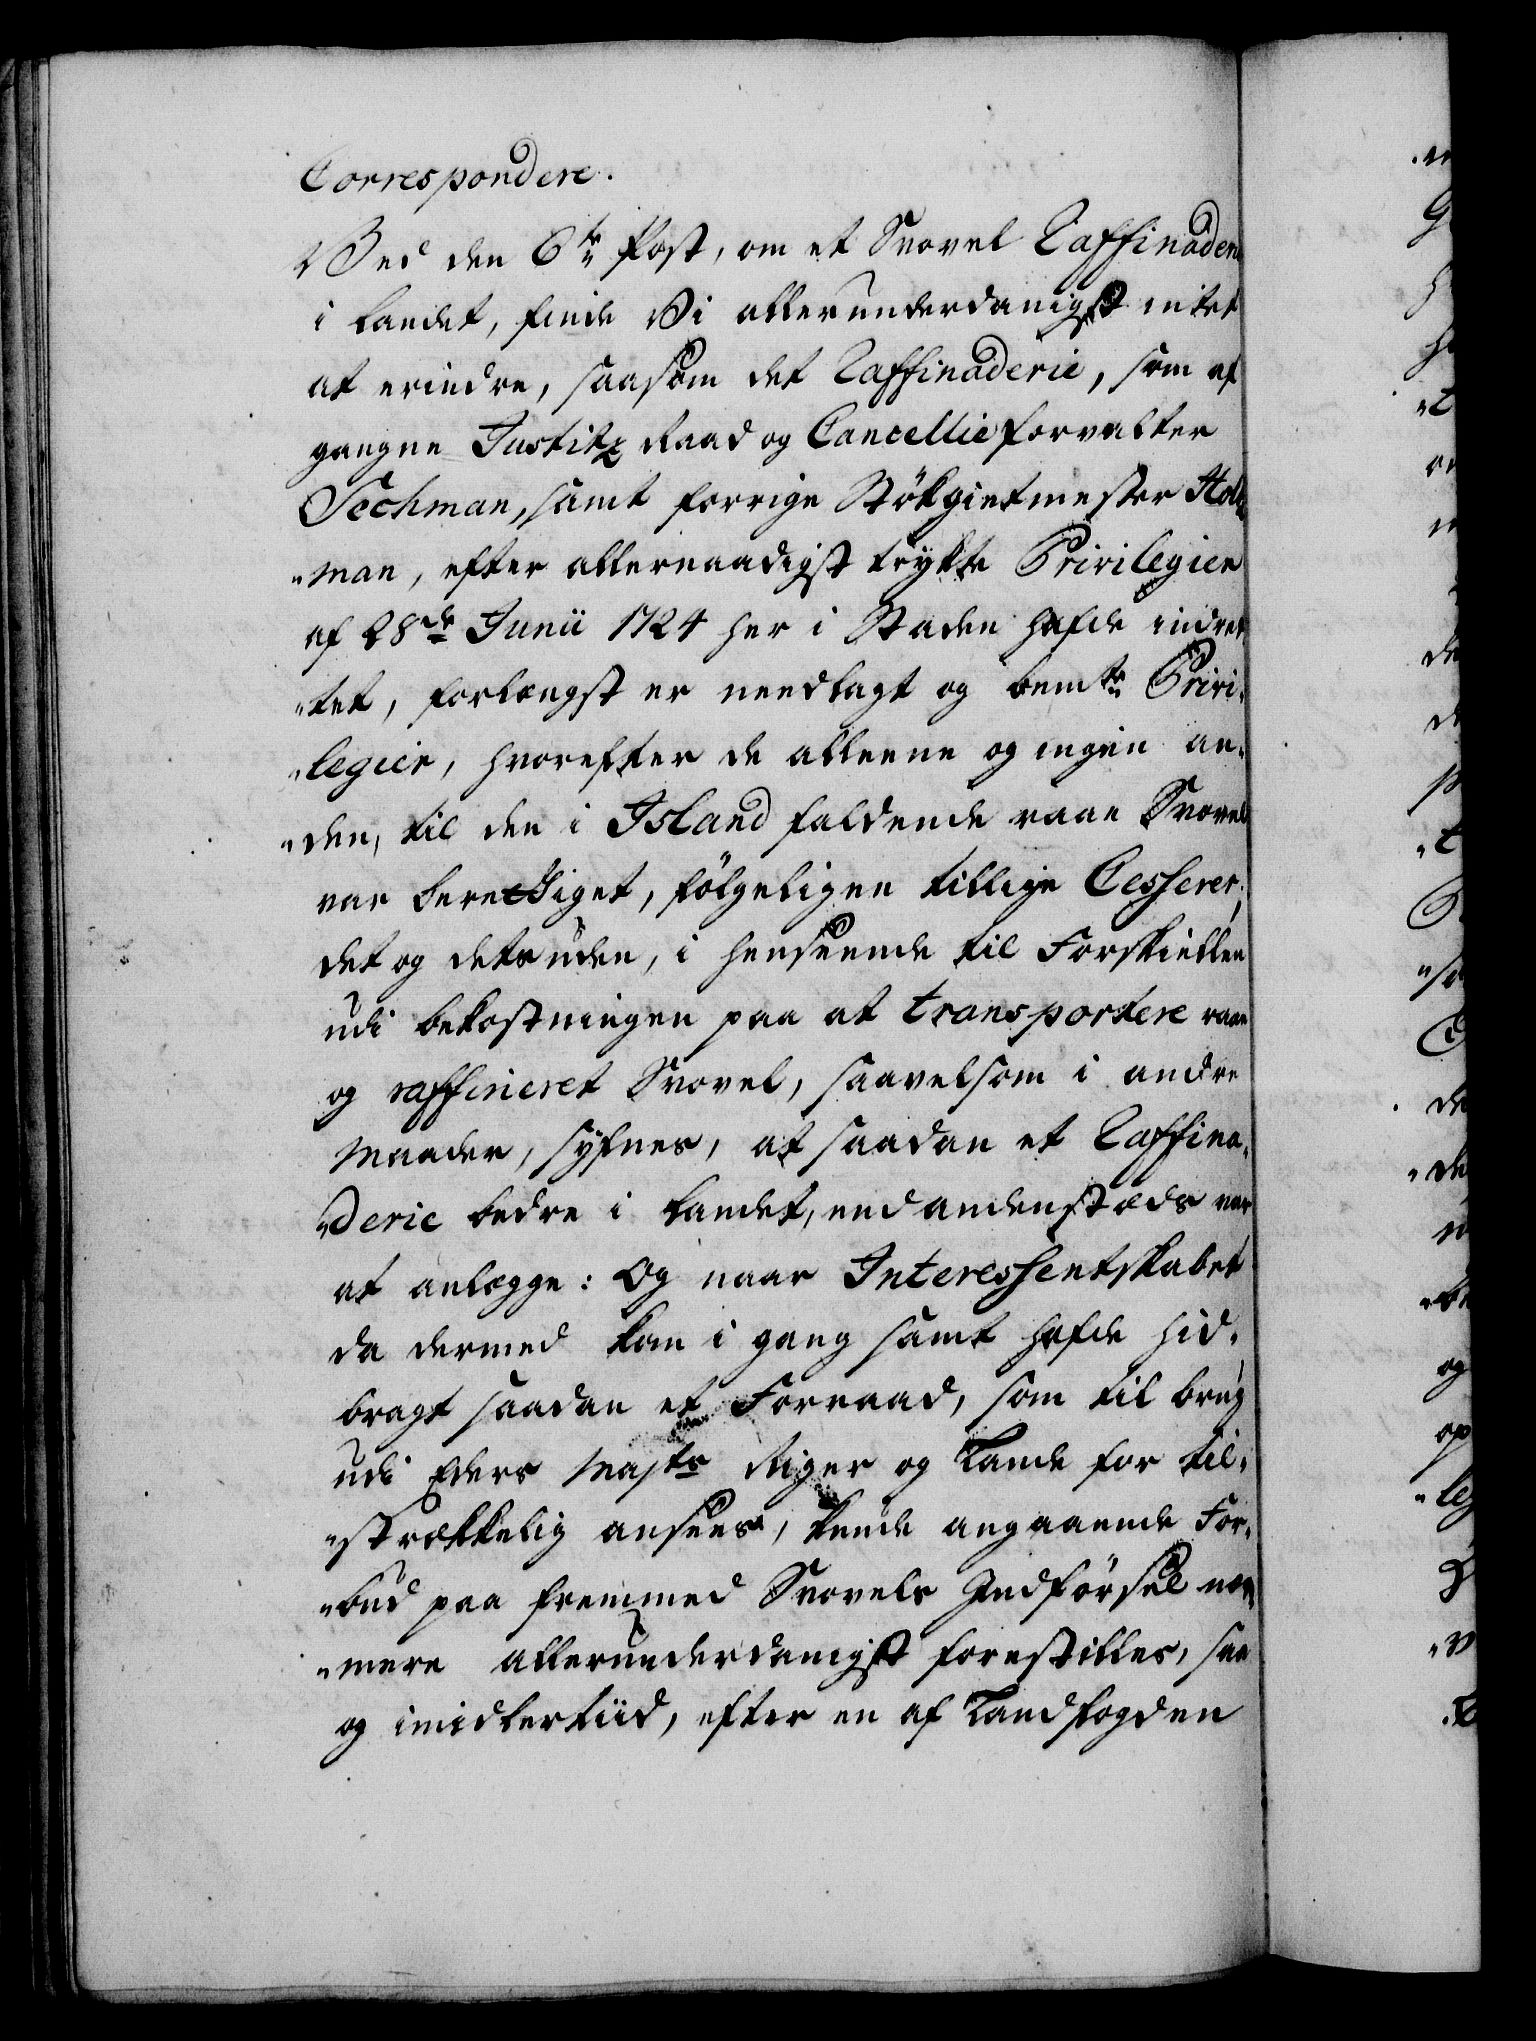 Correspondere.
Ved den 6te Post, om et Svovel Raffinaderie
i landet, finde Vi allerunderdanigst intet
at erindre, saasom det Raffinaderie, som af
gangne Justitz Raad og Cancellieforvalter
Sechman, samt forrige Stökgietmester Holt
"man, efter allernaadigst trykte Privilegier
af 28de Junii 1724 her i Staden hafde indret
"tet, forlængst er needlagt og bemte Privi„
"legier, hvorefter de alleene og ingen an„
"den, til den i Island faldende raae Svovel
var berettiget, fölgeligen tillige Cesseret,
det og desuden, i henseende til Forskiellen
udi bekostningen paa at transportere raae
og raffineret Svovel, saavelsom i andre
Maader, syfnes, at saadan et Raffina„
"derie bedre i landet, end andenstæds var
at anlægge: Og naar Interessentskabet
da dermed kom i gang samt hafde hid„
bragt saadan et Forraad, som til brug
udi Eders Majts Riger og Lande for til„
"strækkelig ansees, kunde angaaende For„
"bud paa fremmed Svovels Indförsel nær
"mere allerunderdanigst forestilles, saa
og imidlertiid, efter en af Landfogden